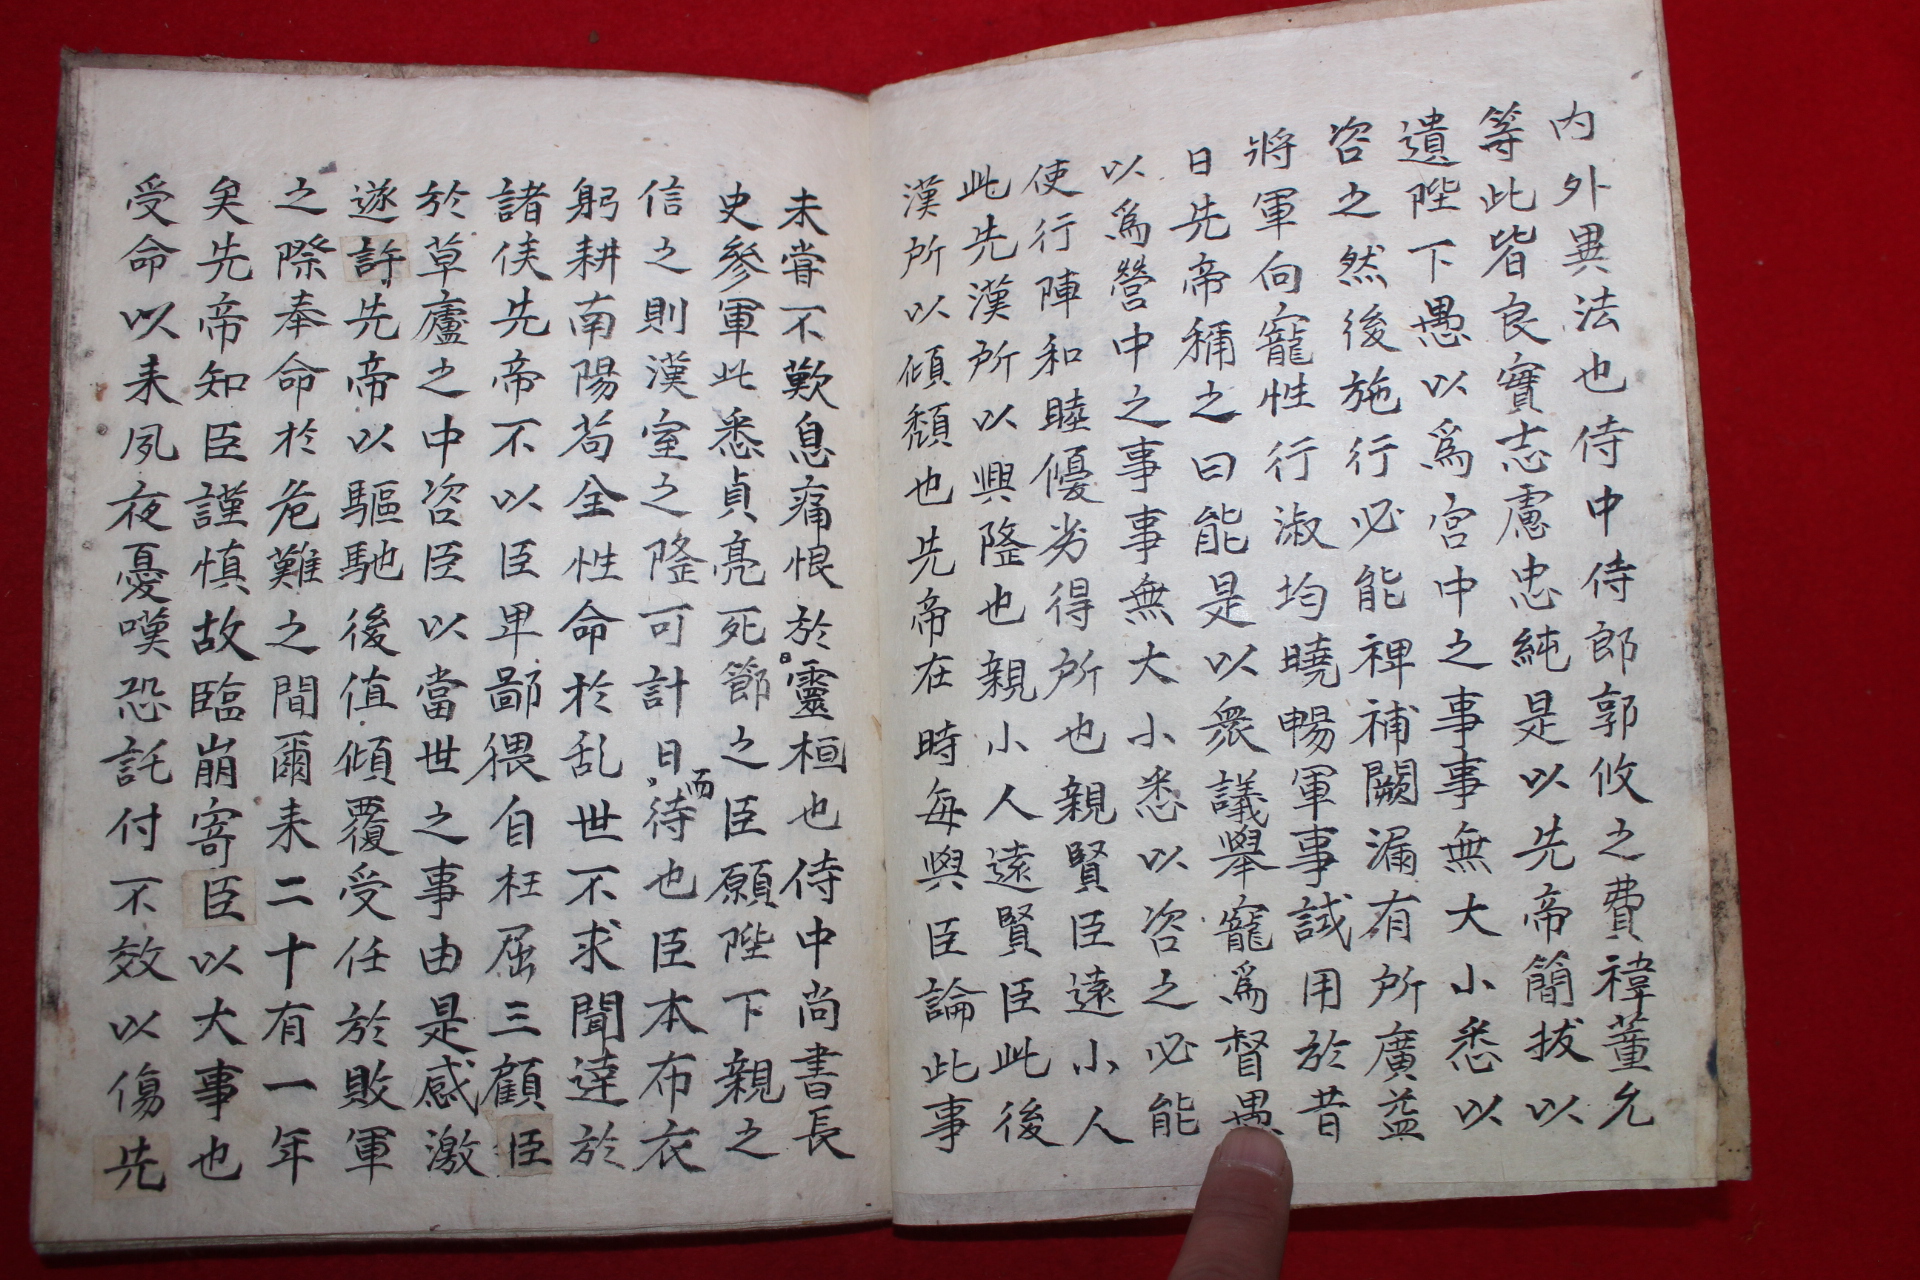 内外異法也侍中侍郎郭攸之費禕董允
等此皆良實志慮忠純是以先帝簡拔以
遺陛下愚以爲宮中之事事無大小悉以
咨之然後施行必能裨補闕漏有所廣益
將軍向寵性行淑均曉暢軍事試用於昔
日先帝稱之曰能是以衆議擧寵爲督愚
以爲營中之事事無大小悉以咨之必能
使行陣和睦優劣得所也親賢臣遠小人
此先漢所以興隆也親小人遠賢臣此後
漢所以傾頹也先帝在時每與臣論此事
未嘗不歎息痛恨於靈桓也侍中尚書長
史參軍此悉貞亮死節之臣願陛下親之
信之則漢室之隆可計日而待也臣本布衣
躬耕南陽苟全性命於乱世不求聞達於
諸侯先帝不以臣卑鄙猥自枉屈三顧臣
於草廬之中咨臣以當世之事由是感激
遂許先帝以驅馳後値傾覆受任於敗軍
之際奉命於危難之間爾来二十有一年
矣先帝知臣謹慎故臨崩寄臣以大事也
受命以来夙夜憂嘆恐託付不效以傷先